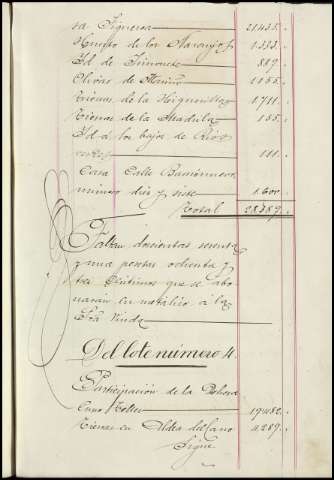 sa Figueroa 21.435.
Huerto de los Naranjos 1.333.
Id de 889.
Olivar de 1.055.
Tierras de la Higuerilla 1.711.
Tierras de la 155.
Id á los bajos de
111.
Casa Calle Barrionuevo
número diez y siete 1.600.
Total 28.289.
Faltan doscientas sesenta
y una pesetas ochenta y
tres céntimos que se abo
narán en metálico á la
Sra Viuda
Del lote número 4.
Participación de la Dehesa
19.482.
Tierras en Aldea del Cano 4.289.
Sigue